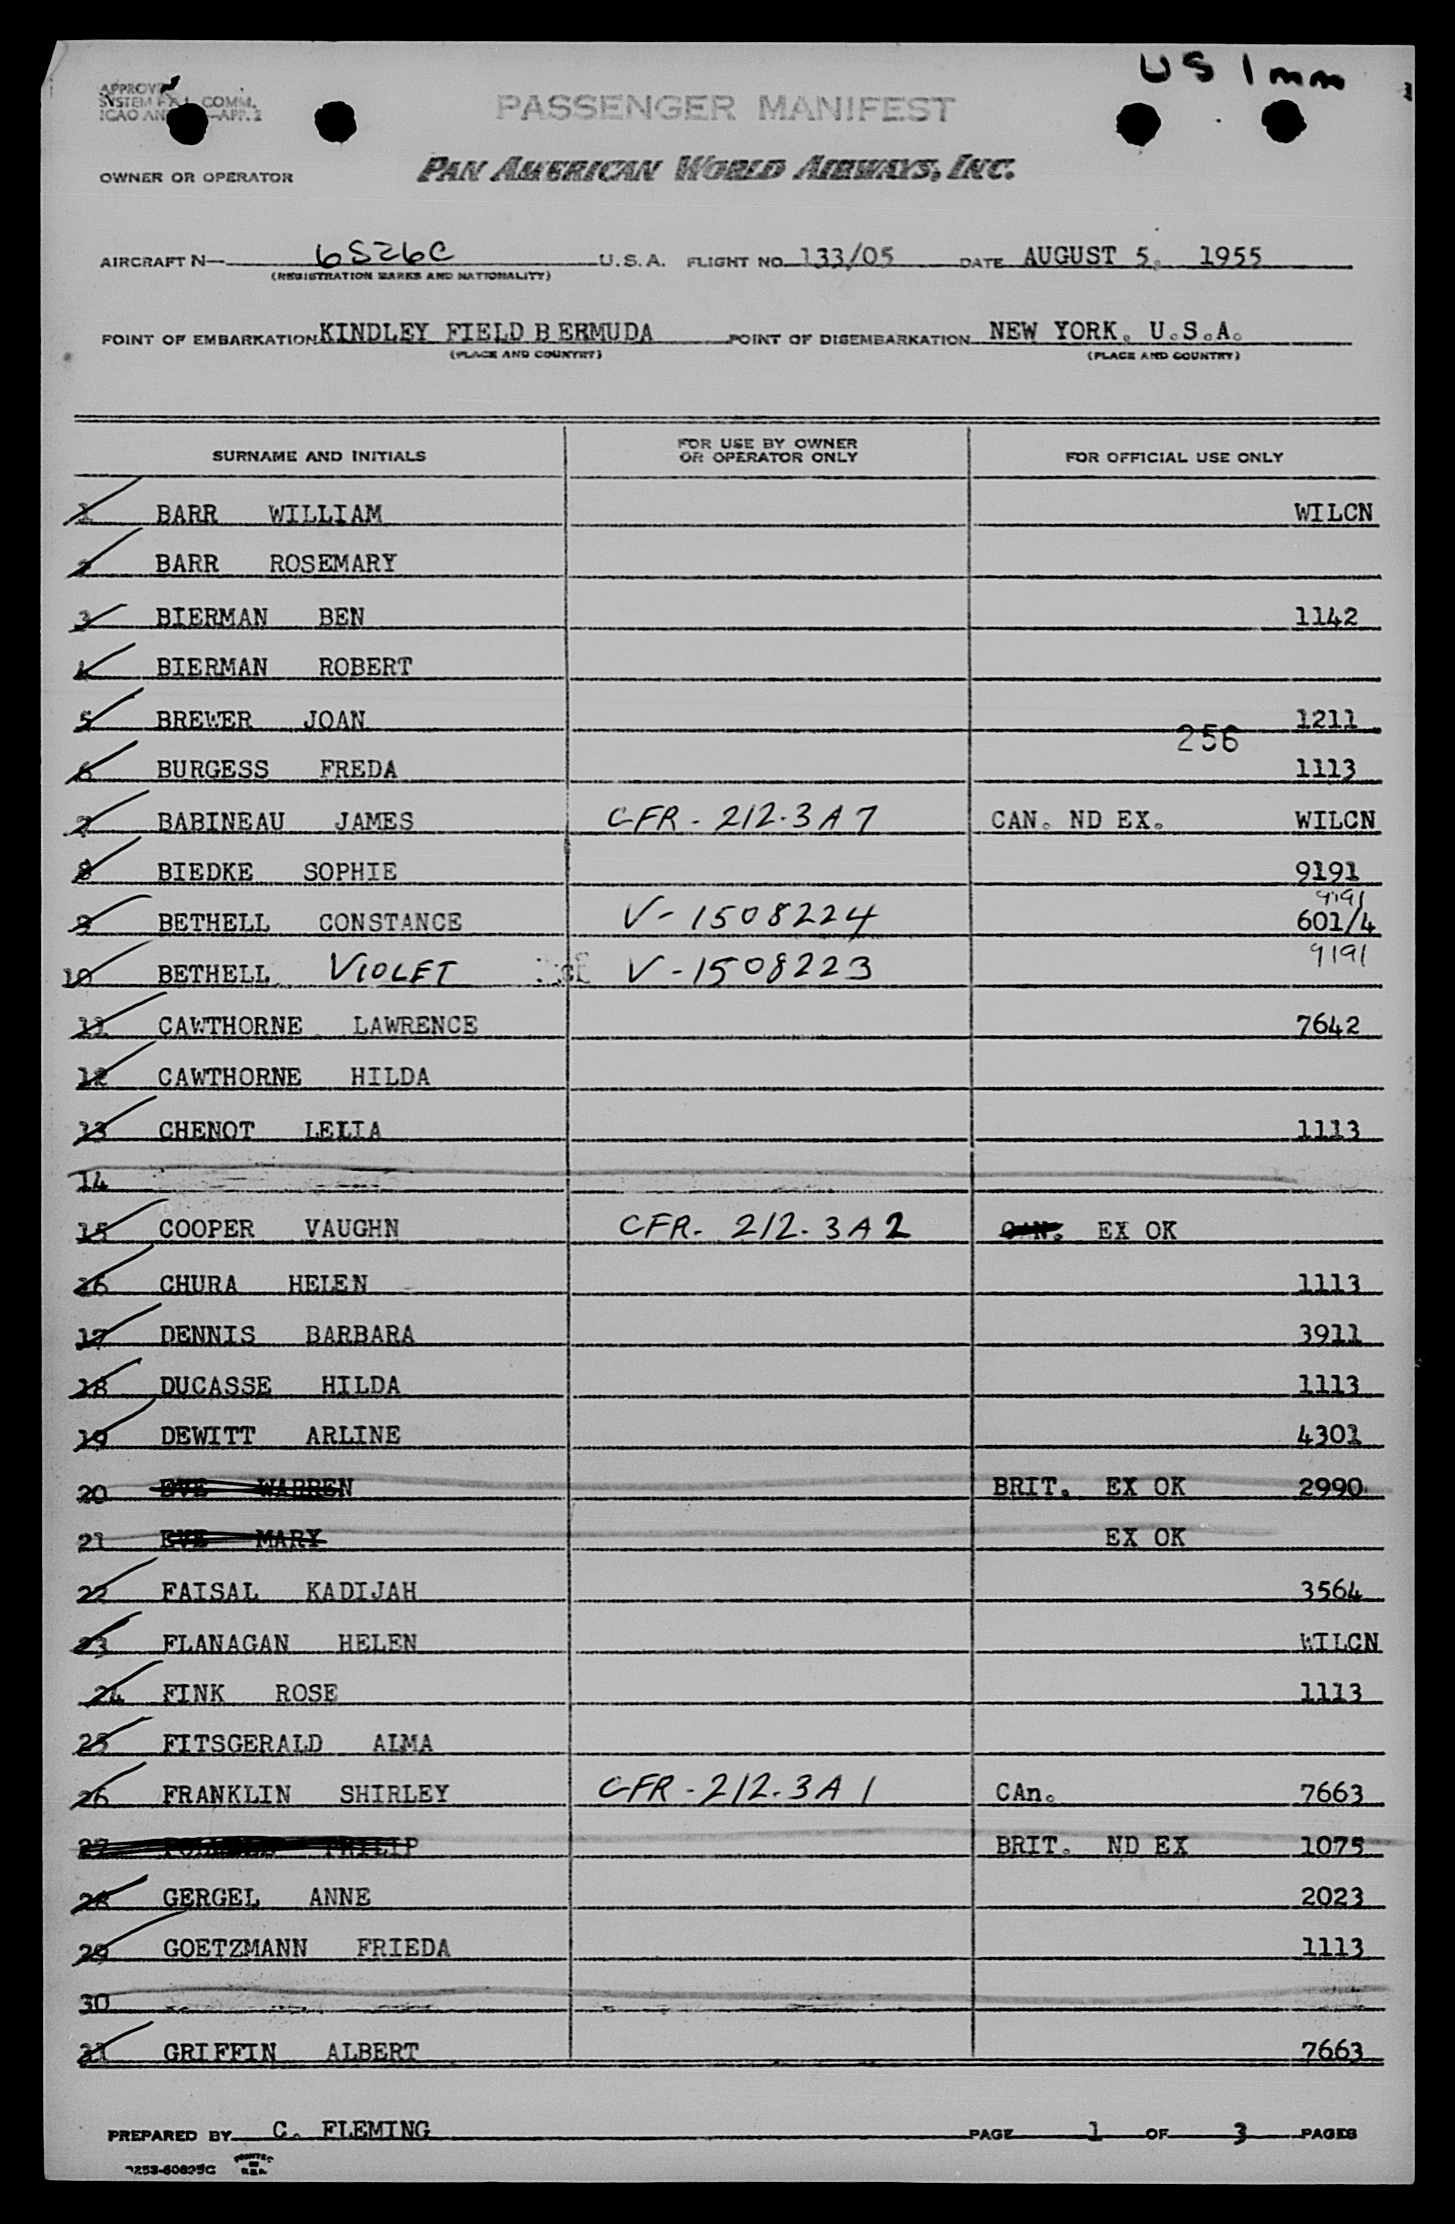 US 1mm
PASSENGER MANIFEST
OWNER OR OPERATOR PAN AMERICAN WORLD AIRWAYS, INC.
AIRCRAFT N— 6526C U.S.A. FLIGHT NO. 133/05 DATE AUGUST 5. 1955
(REGISTRATION MARKS AND NATIONALITY)
POINT OF EMBARKATION KINDLEY FIELD B ERMUDA POINT OF DISEMBARKATION NEW YORK. U.S.A.
(PLACE AND COUNTRY) (PLACE AND COUNTRY)
SURNAME AND INITIALS FOR USE BY OWNER OR OPERATOR ONLY FOR OFFICIAL USE ONLY
1 BARR WILLIAM WILCN
2 BARR ROSEMARY
3 BIERMAN BEN 1142
4 BIERMAN ROBERT
5 BREWER JOAN 1211
256
6 BURGESS FREDA 1113
7 BABINEAU JAMES CFR - 212.3A7 CAN. ND EX. WILCN
8 BIEDKE SOPHIE 9191
9191
9 BETHELL CONSTANCE V-1508224 601/4
10 BETHELL VIOLET V-1508223 9191
11 CAWTHORNE LAWRENCE 7642
12 CAWTHORNE HILDA
13 CHENOT LELIA 1113
14
15 COOPER VAUGHN CFR- 212.3A2 CAN. EX OK
16 CHURA HELEN 1113
17 DENNIS BARBARA 3911
18 DUCASSE HILDA 1113
19 DEWITT ARLINE 4301
20 EVE WARREN BRIT. EX OK 2990
21 EVE MARY EX OK
22 FAISAL KADIJAH 3564
23 FLANAGAN HELEN WILCN
24 FINK ROSE 1113
25 FITSGERALD ALMA
26 FRANKLIN SHIRLEY CFR-212.3A1 CAn. 7663
27 PHILIP BRIT. ND EX 1075
28 GERGEL ANNE 2023
29 GOETZMANN FRIEDA 1113
30
31 GRIFFIN ALBERT 7663
PREPARED BY C. FLEMING PAGE 1 OF 3 PAGES
PRINTED
IN
U.S.A.